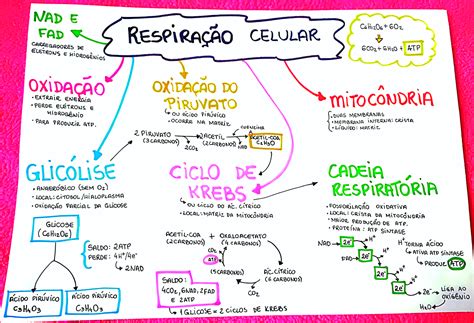 RESPIRAÇÃO CELULAR
C₆H₁₂O₆ + 6O₂
6CO₂ + 6H₂O + ATP
NAD E
FAD
CARREGADORES DE
ELÉTRONS E HIDROGÊNIOS
OXIDAÇÃO
- EXTRAIR ENERGIA
- PERDE ELÉTRONS E
HIDROGÊNIO
- PARA PRODUZIR ATP.
OXIDAÇÃO DO
PIRUVATO
- OU ÁCIDO PIRÚVICO
- OCORRE NA MATRIZ
MITOCÔNDRIA
- DUAS MEMBRANAS
- MEMBRANA INTERNA: CRISTA
- LÍQUIDO: MATRIZ
2 PIRUVATO
(3 CARBONOS)
2CO₂
2ACETIL
(2CARBONOS)
COENZIMA
2NAD
ACETIL-COA
GLICÓLISE
- ANAERÓBICO (SEM O₂)
- LOCAL: CITOSOL/HIALOPLASMA
- OXIDAÇÃO PARCIAL DA GLICOSE
GLICOSE
(C₆H₁₂O₆)
SALDO: 2ATP
PERDE: 4H⁺/4e⁻
2NAD
ÁCIDO PIRÚVICO
C₃H₄O₃
ÁCIDO PIRÚVICO
C₃H₄O₃
CICLO DE
KREBS
- OU CICLO DO ÁC. CÍTRICO
- LOCAL: MATRIZ DA MITOCÔNDRIA
ACETIL-COA + OXALOACETATO
(2 CARBONOS) (4 CARBONOS)
CO₂
ATP
(5CARBONOS)
ÁC. CÍTRICO
(6 CARBONOS)
CO₂
SALDO:
4CO₂, 6NAD, 2FAD
E 2ATP
1 GLICOSE = 2 CICLOS DE KREBS
CADEIA
RESPIRATÓRIA
- FOSFORILAÇÃO OXIDATIVA
- LOCAL: CRISTA DA MITOCÔNDRIA
- MAIOR PRODUÇÃO DE ATP.
- PROTEÍNA: ATP SINTASE
NAD
2e⁻
H⁺
FAD
2e⁻
H⁺
2e⁻
H⁺
2e⁻
H⁺ TORNA ÁCIDO
ATIVA ATP SINTASE
PRODUZ ATP
LIGA AO
OXIGÊNIO
H₂O